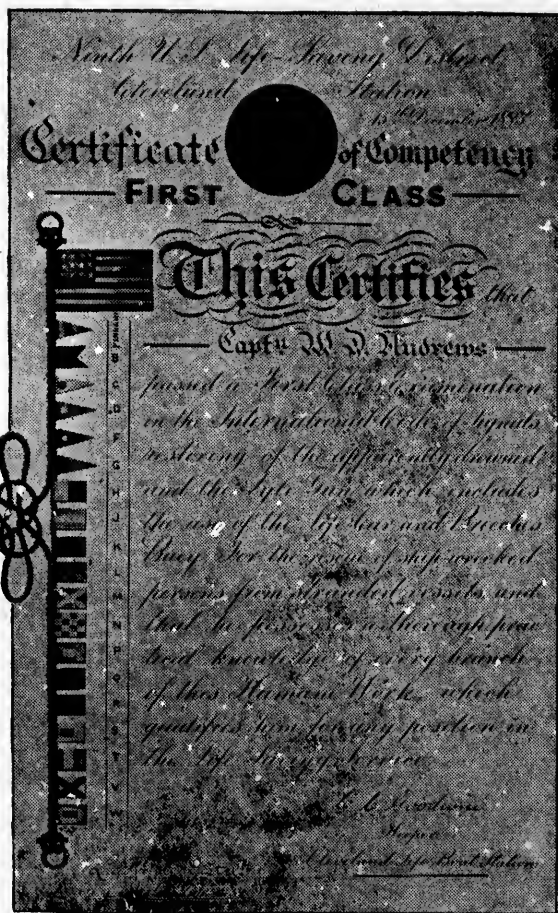 Ninth U.S. Life-Saving District
Cleveland Station
15th December
Certificate of Competency
FIRST CLASS
This Certifies that
Captn W. D. Andrews
passed a First Class Examination
in the International Code of Signals
restoring of the apparently drowned
and the Life Gun which includes
the use of the Life Car and Breeches
Buoy For the rescue of ship-wrecked
persons from stranded vessels and
that he possesses a thorough prac
tical knowledge of every branch
of this Humane Work which
qualifies him for any position in
the Life Saving Service
Keeper
Cleveland Life Boat Station
B
C
D
F
G
H
J
K
L
M
N
P
Q
R
S
T
V
W